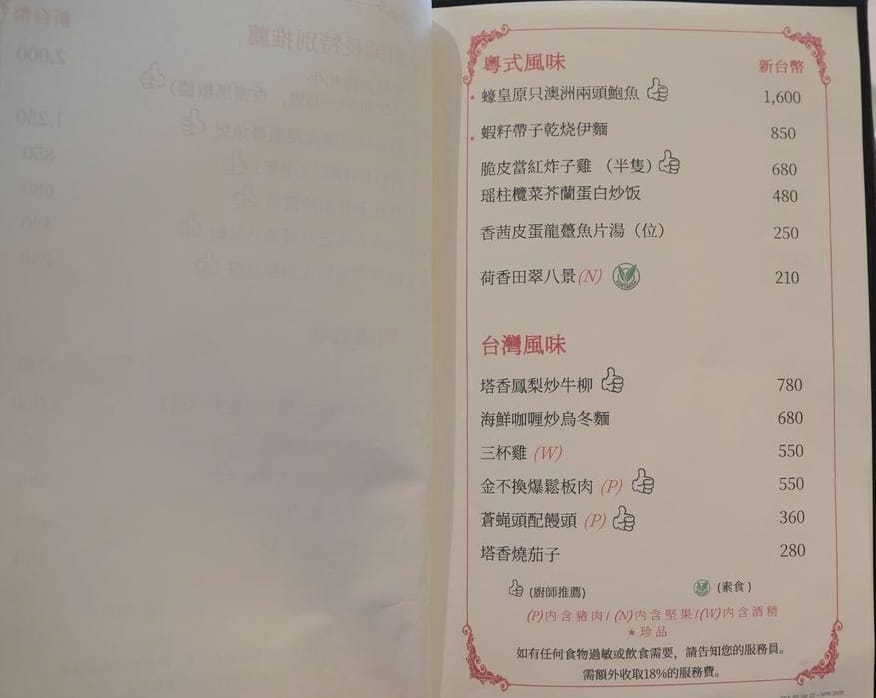 粵式風味
新台幣
蠔皇原只澳洲兩頭鮑魚 1,600
蝦籽帶子乾燒伊麵 850
脆皮當紅炸子雞 (半隻) 680
瑶柱欖菜芥蘭蛋白炒饭 480
香茜皮蛋龍躉魚片湯（位） 250
荷香田翠八景(N) 210
台灣風味
塔香鳳梨炒牛柳 780
海鮮咖喱炒烏冬麵 680
三杯雞 (W) 550
金不換爆鬆板肉 (P) 550
蒼蝇頭配饅頭 (P) 360
塔香燒茄子 280
(廚師推薦) (素食)
(P)內含豬肉/ (N)內含堅果/(W)內含酒精
★珍品
如有任何食物過敏或飲食需要，請告知您的服務員。
需額外收取18%的服務費。